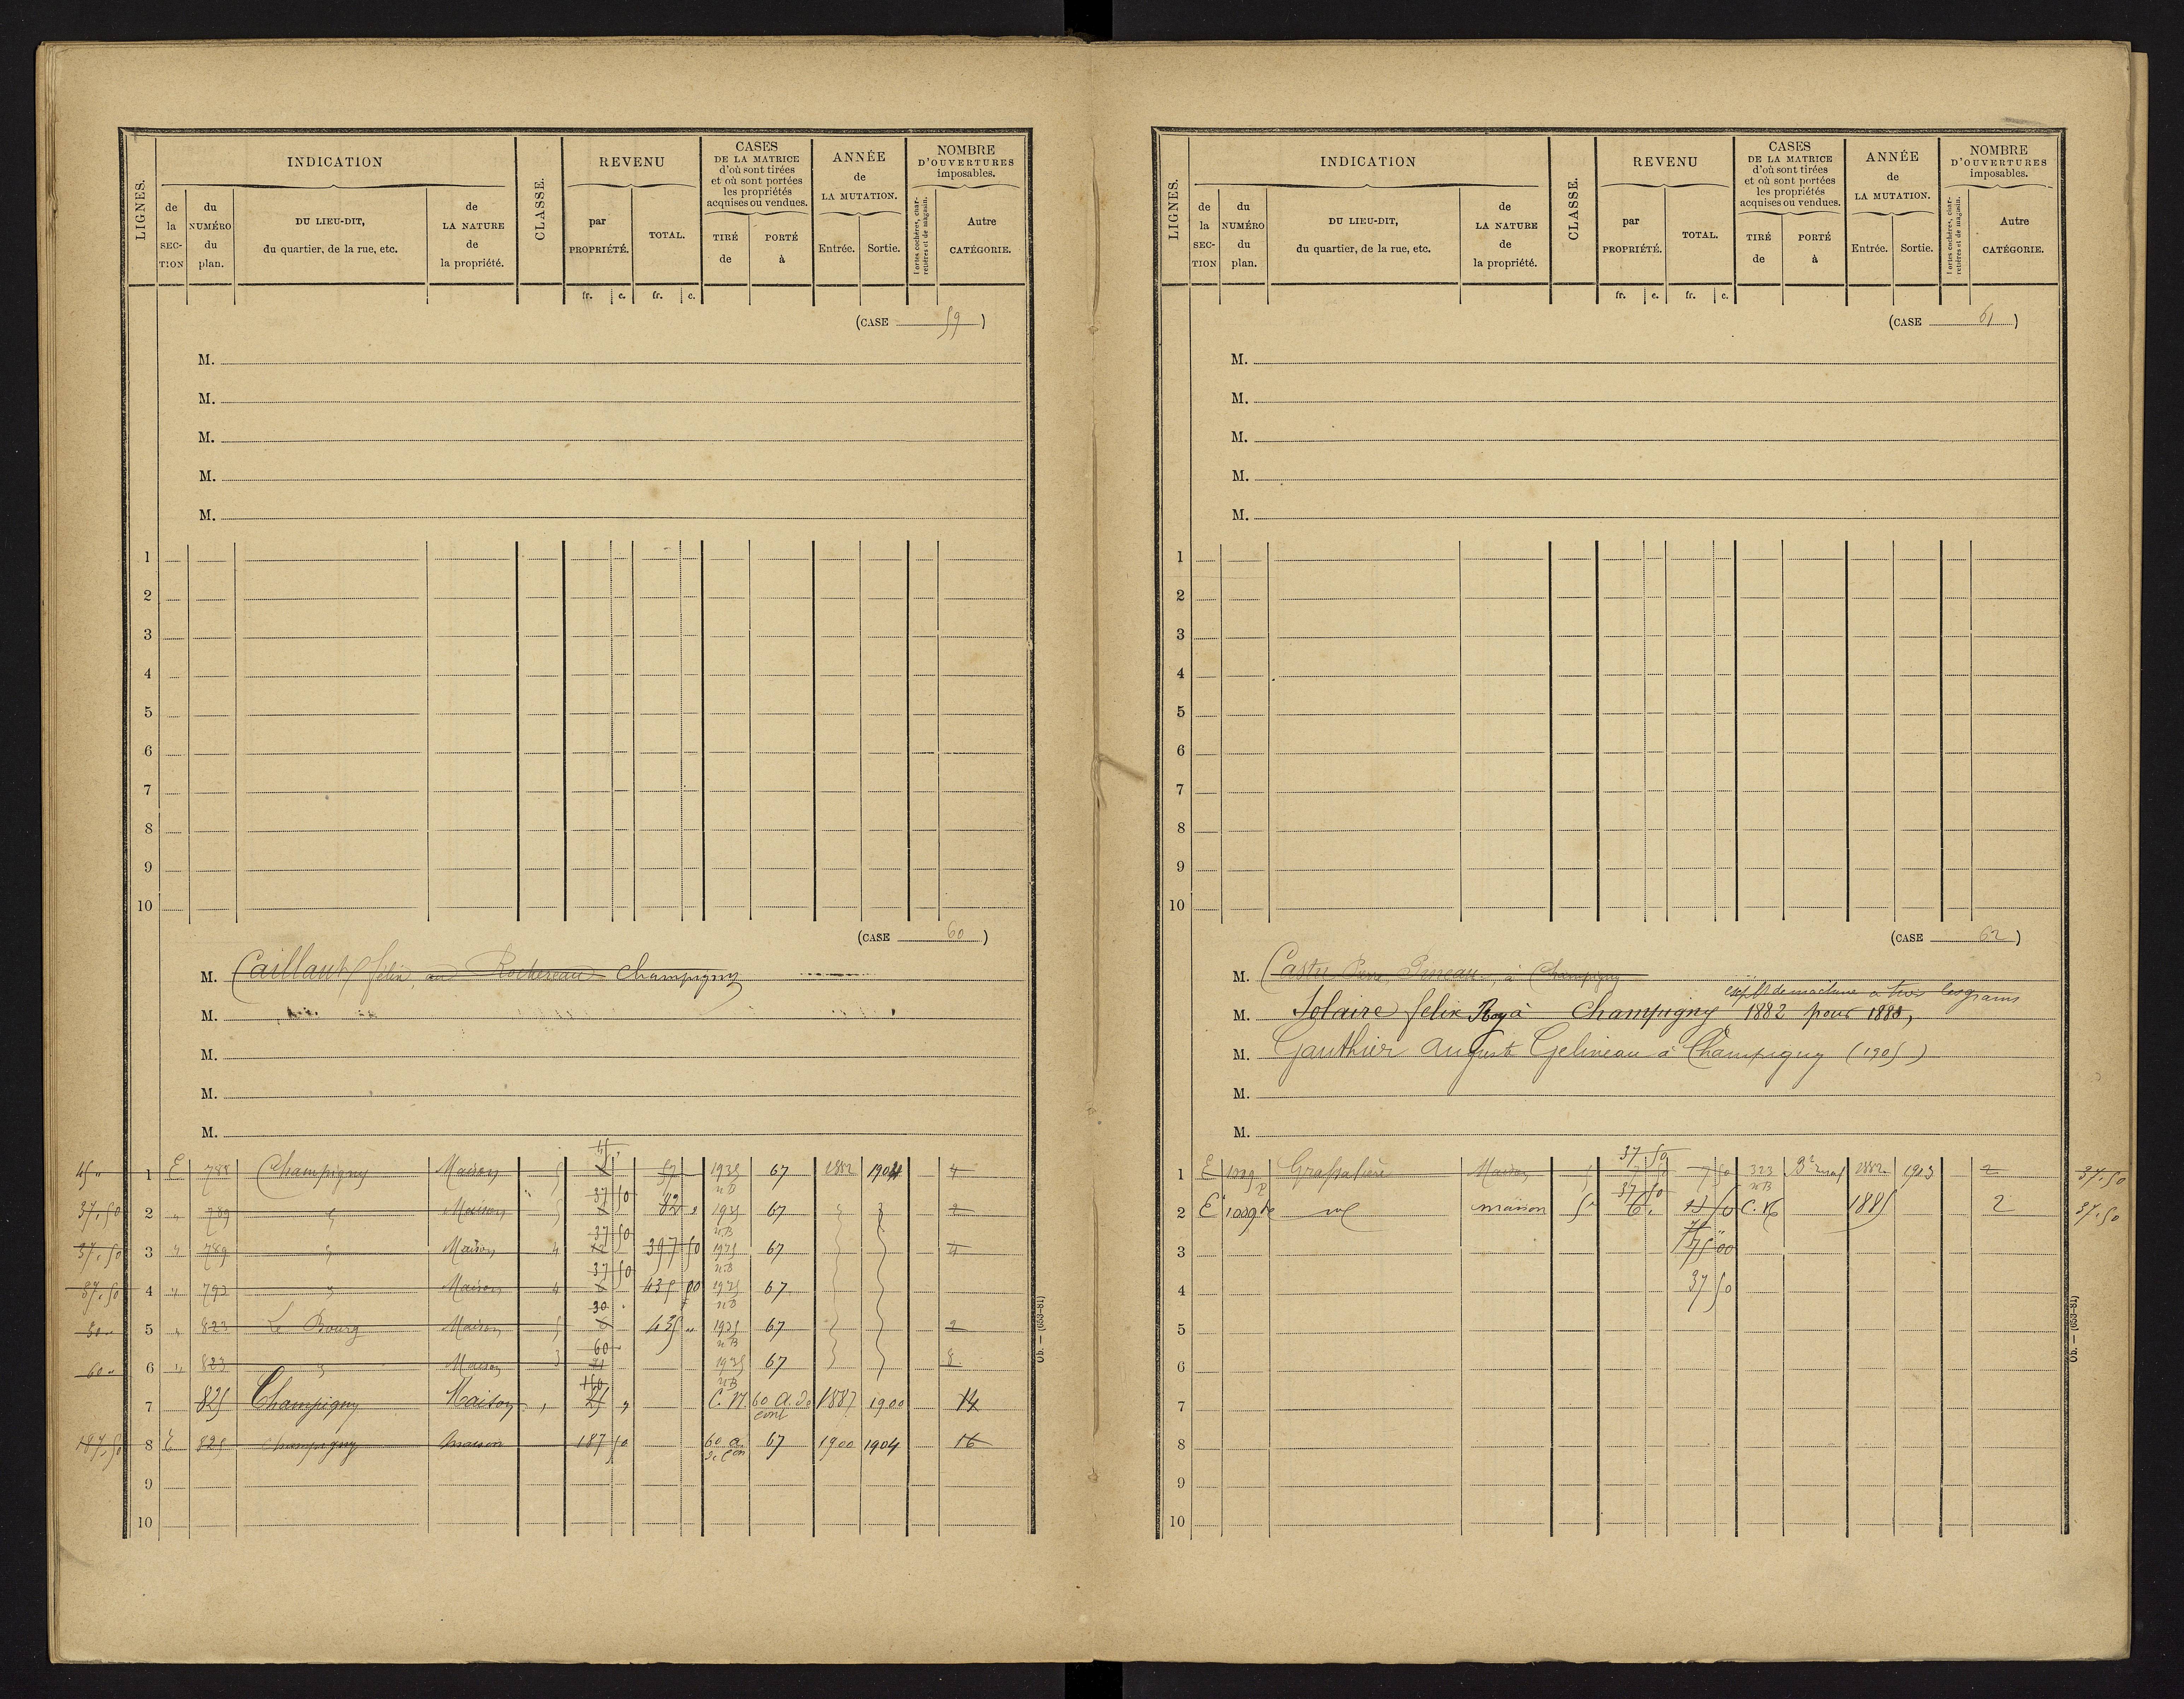 LIGNES.
INDICATION
de la SECTION
du NUMÉRO du plan.
DU LIEU-DIT, du quartier, de la rue, etc.
de LA NATURE de la propriété.
CLASSE.
REVENU
par PROPRIÉTÉ.
TOTAL.
CASES DE LA MATRICE d'où sont tirées et où sont portées les propriétés acquises ou vendues.
TIRÉ de
PORTÉ à
ANNÉE de LA MUTATION.
Entrée.
Sortie.
NOMBRE D'OUVERTURES imposables.
Portes cochères, charretières et de magasin.
Autre CATÉGORIE.
fr. c. fr. c.
(CASE 59)
M.
M.
M.
M.
M.
1
2
3
4
5
6
7
8
9
10
(CASE 60)
M. Caillaut felix, Rochereau Champigny
M.
M.
M.
M.
45 " 1 E 788 Champigny Maison 5 45 57 1935 nB 67 1882 1904 4
37.50 2 " 789 " Maison 5 37 50 82 " 1935 nB 67 " " 2
37.50 3 " 789 " Maison 4 37 50 397 50 1935 nB 67 4
37.50 4 " 792 " Maison 4 37 50 435 00 1935 nB 67
30 " 5 " 823 Le Bourg Maison 5 30 435 " 1935 nB 67 2
60 " 6 " 823 " Maison 3 60 1935 nB 67 8
7 825 Champigny Maison " 150 C.N. 60 a. de cont 1887 1900 14
187.50 8 E 825 Champigny maison 187 50 60 a. de Con 67 1900 1904 16
9
10
Ob. — (653-81)
LIGNES.
INDICATION
de la SECTION
du NUMÉRO du plan.
DU LIEU-DIT, du quartier, de la rue, etc.
de LA NATURE de la propriété.
CLASSE.
REVENU
par PROPRIÉTÉ.
TOTAL.
CASES DE LA MATRICE d'où sont tirées et où sont portées les propriétés acquises ou vendues.
TIRÉ de
PORTÉ à
ANNÉE de LA MUTATION.
Entrée.
Sortie.
NOMBRE D'OUVERTURES imposables.
Portes cochères, charretières et de magasin.
Autre CATÉGORIE.
fr. c. fr. c.
(CASE 61)
M.
M.
M.
M.
M.
1
2
3
4
5
6
7
8
9
10
(CASE 62)
M. Castu Pierre, à Champigny
M. Solaire felix Roy à Champigny 1882 pour 1883,
M. Gauthier Auguste Gelineau à Champigny (1905)
M.
M.
1 E 1009 p Maison 5 37 50 7 50 323 nB 1882 1903 2 37.50
2 E 1009 p maison 5 37 50 6 " 13 50 C.N. 1885 2 37.50
3 75 00
4 37 50
5
6
7
8
9
10
Ob. — (653-81)